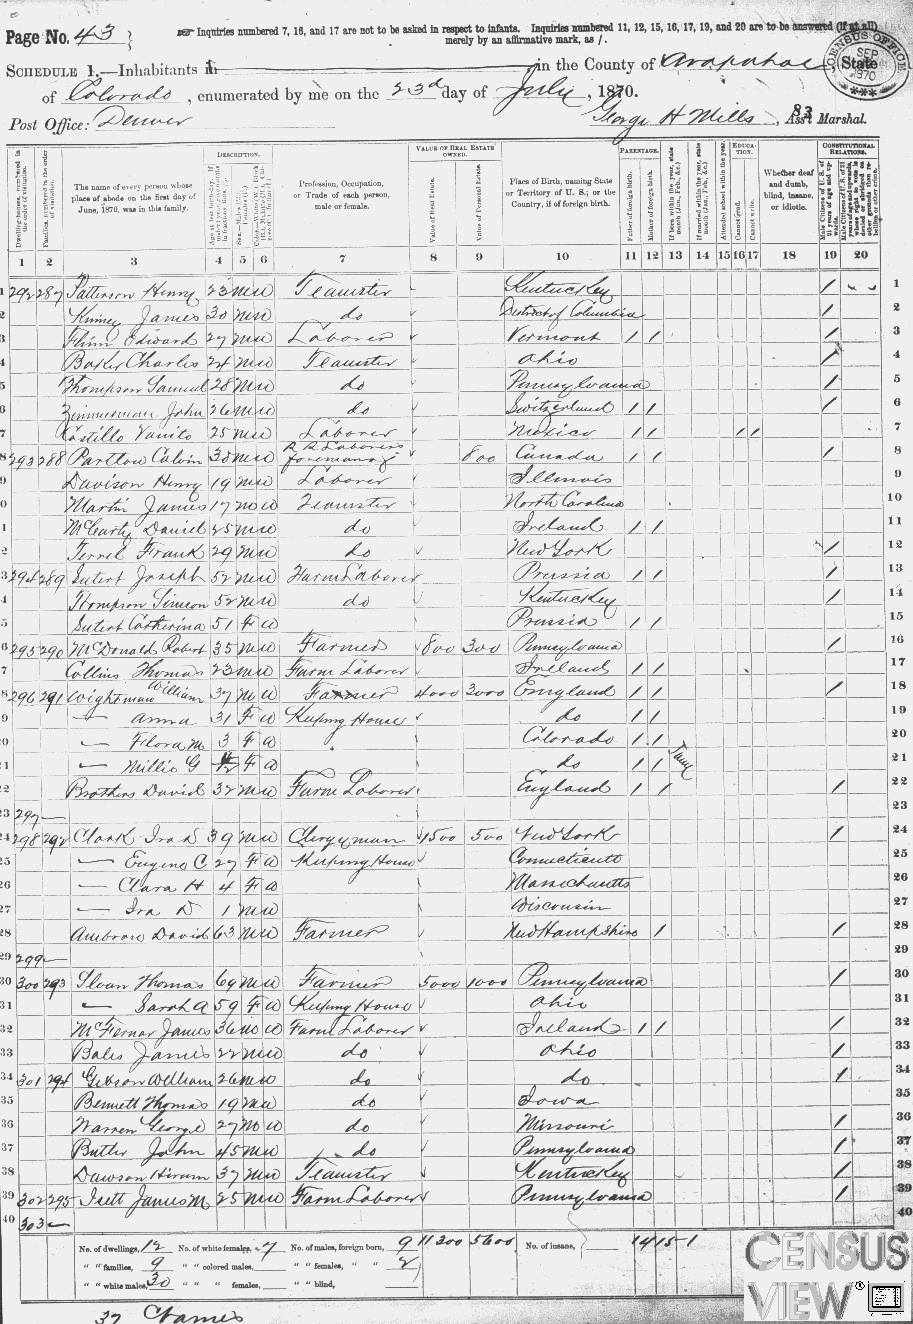 Page No. 43
Inquiries numbered 7, 16, and 17 are not to be asked in respect to infants. Inquiries numbered 11, 12, 15, 16, 17, 19, and 20 are to be answered (if at all)
merely by an affirmative mark, as /.
SCHEDULE 1.—Inhabitants in in the County of Arapahoe State
of Colorado, enumerated by me on the 23d day of July, 1870.
Post Office: Denver George H Mills, Ass't Marshal.
83
CENSUS OFFICE SEP 1870
DESCRIPTION. VALUE OF REAL ESTATE OWNED. PARENTAGE. EDUCATION. CONSTITUTIONAL RELATIONS.
Dwelling-houses, numbered in the order of visitation.
Families, numbered in the order of visitation.
The name of every person whose place of abode on the first day of June, 1870, was in this family.
Profession, Occupation, or Trade of each person, male or female.
Value of Real Estate.
Value of Personal Estate.
Place of Birth, naming State or Territory of U. S.; or the Country, if of foreign birth.
Father of foreign birth.
Mother of foreign birth.
If born within the year, state month (Jan., Feb., &c.)
If married within the year, state month (Jan., Feb., &c.)
Attended school within the year.
Cannot read.
Cannot write.
Whether deaf and dumb, blind, insane, or idiotic.
1 2 3 4 5 6 7 8 9 10 11 12 13 14 15 16 17 18 19 20
1 292 287 Patterson Henry 23 M W Teamster Kentucky / 1
2 Kinney James 30 M W do District of Columbia / 2
3 Flinn Edward 27 M W Laborer Vermont / / / 3
4 Baxter Charles 24 M W Teamster Ohio / 4
5 Thompson Samuel 28 M W do Pennsylvania / 5
6 Zimmerman John 26 M W do Switzerland / / / 6
7 Castillo Vanito 25 M W Laborer Mexico / / / / 7
8 293 288 Partlow Calvin 38 M W R R Laborers foreman of 800 Canada / / / 8
9 Davison Henry 19 M W Laborer Illinois 9
10 Martin James 17 M W Teamster North Carolina 10
11 McCarty Daniel 25 M W do Ireland / / 11
12 Terrel Frank 29 M W do New York / 12
13 294 289 Sutert Joseph 52 M W Farm Laborer Prussia / / / 13
14 Thompson Simeon 52 M W do Kentucky / 14
15 Sutert Catherina 51 F W Prussia / / 15
16 295 290 McDonald Robert 35 M W Farmer 800 300 Pennsylvania / 16
17 Collins Thomas 23 M W Farm Laborer Ireland / / 17
18 296 291 Wightman William 37 M W Farmer 4000 3000 England / / / 18
19 — Anna 31 F W Keeping House do / / 19
20 — Flora M 3 F W Colorado / / 20
21 — Millie G F W do / / June 21
22 Brothers David 32 M W Farm Laborer England / / / 22
23 297 — 23
24 298 292 Clark Ira D 39 M W Clergyman 1500 500 New York / 24
25 — Eugene C 27 F W Keeping House Connecticutt 25
26 — Clara H 4 F W Massachusetts 26
27 — Ira D 1 M W Wisconsin 27
28 Ambrose David 63 M W Farmer New Hampshire / / 28
29 299 — 29
30 300 293 Sloan Thomas 69 M W Farmer 5000 1000 Pennsylvania / 30
31 — Sarah A 59 F W Keeping House Ohio 31
32 McFernar James 36 M W Farm Laborer Ireland / / / 32
33 Bales James 22 M W do Ohio / 33
34 301 294 Gibson William 26 M W do do / 34
35 Bennett Thomas 19 M W do Iowa 35
36 Warren George 27 M W do Missouri / 36
37 Butler John 45 M W do Pennsylvania / 37
38 Dawson Hiram 37 M W Teamster Kentucky / 38
39 302 295 Isett James M 25 M W Farm Laborer Pennsylvania / 39
40 303 — 40
No. of dwellings, 12 No. of white females, 7 No. of males, foreign born, 9 11300 5600 No. of insane, 14 15 1
" " families, 9 " " colored males, " " females, " " 2
" " white males, 30 " " " females, " " blind,
37 Names
CENSUS
VIEW®